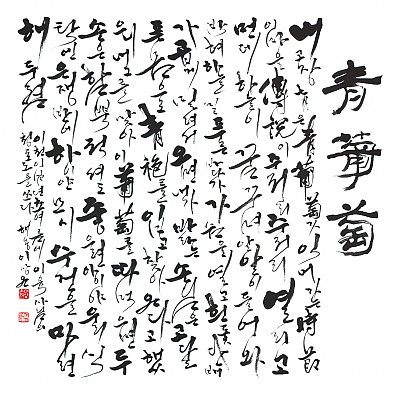 靑葡萄
내 고장 七月은 靑葡萄가 익어가는 時節
이 마을 傳說이 주저리 주저리 열리고
먼데 하늘이 꿈꾸며 알알이 들어와
박혀 하늘 밑 푸른 바다가 가슴을 열고 흰 돛단배
가 곱게 밀려서 오면 내가 바라는 손님은 고달
픈 몸으로 靑袍를 입고 찾아온다고 했
으니 내 그를 맞아 이 葡萄를 따먹으면 두
손은 함뿍 적셔도 좋으련 아이야 우리 식
탁엔 은쟁반에 하이얀 모시 수건을 마련
해 두렴
이육사
청포도를 쓰다